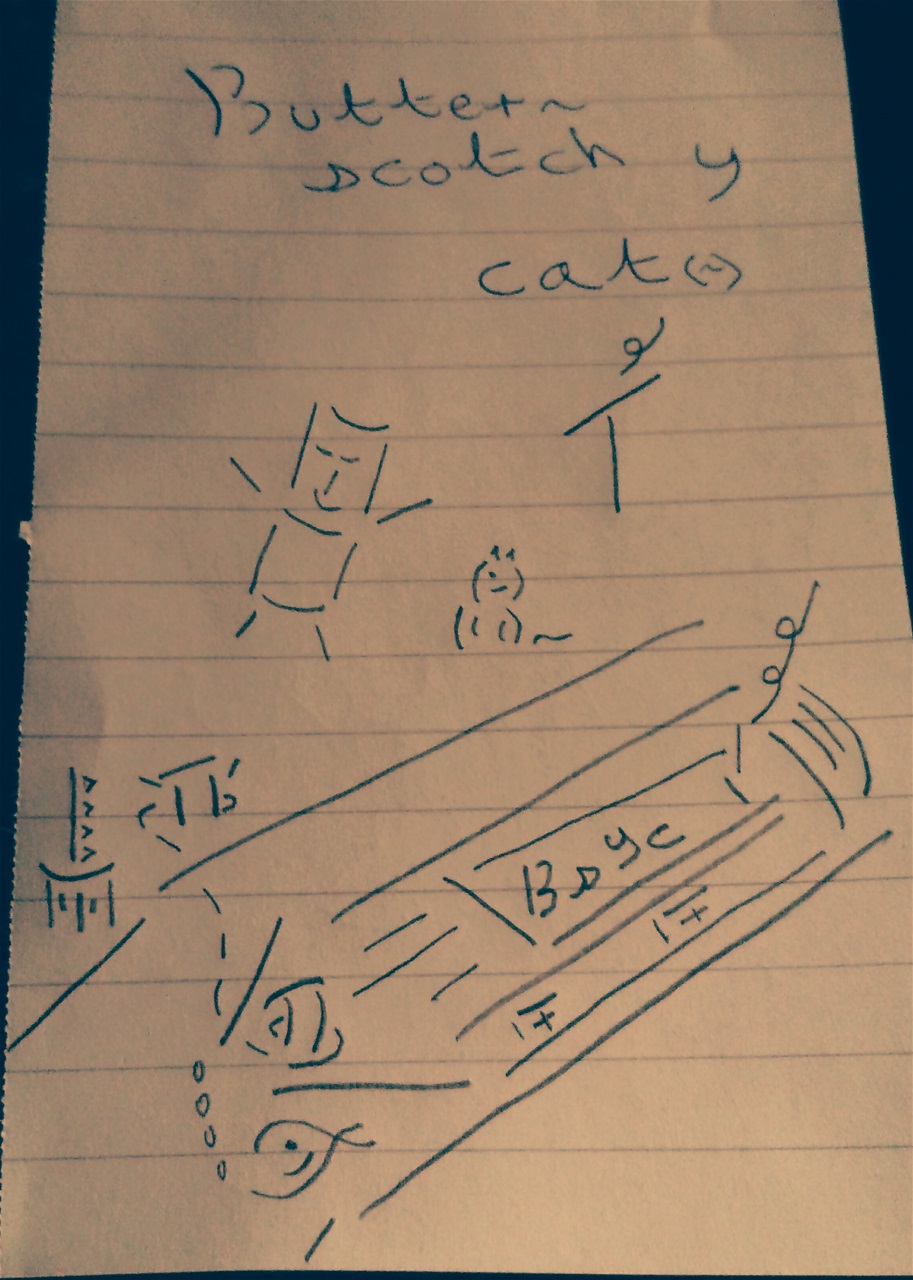 Butter~
scotch y
cat(~)
Bsyc